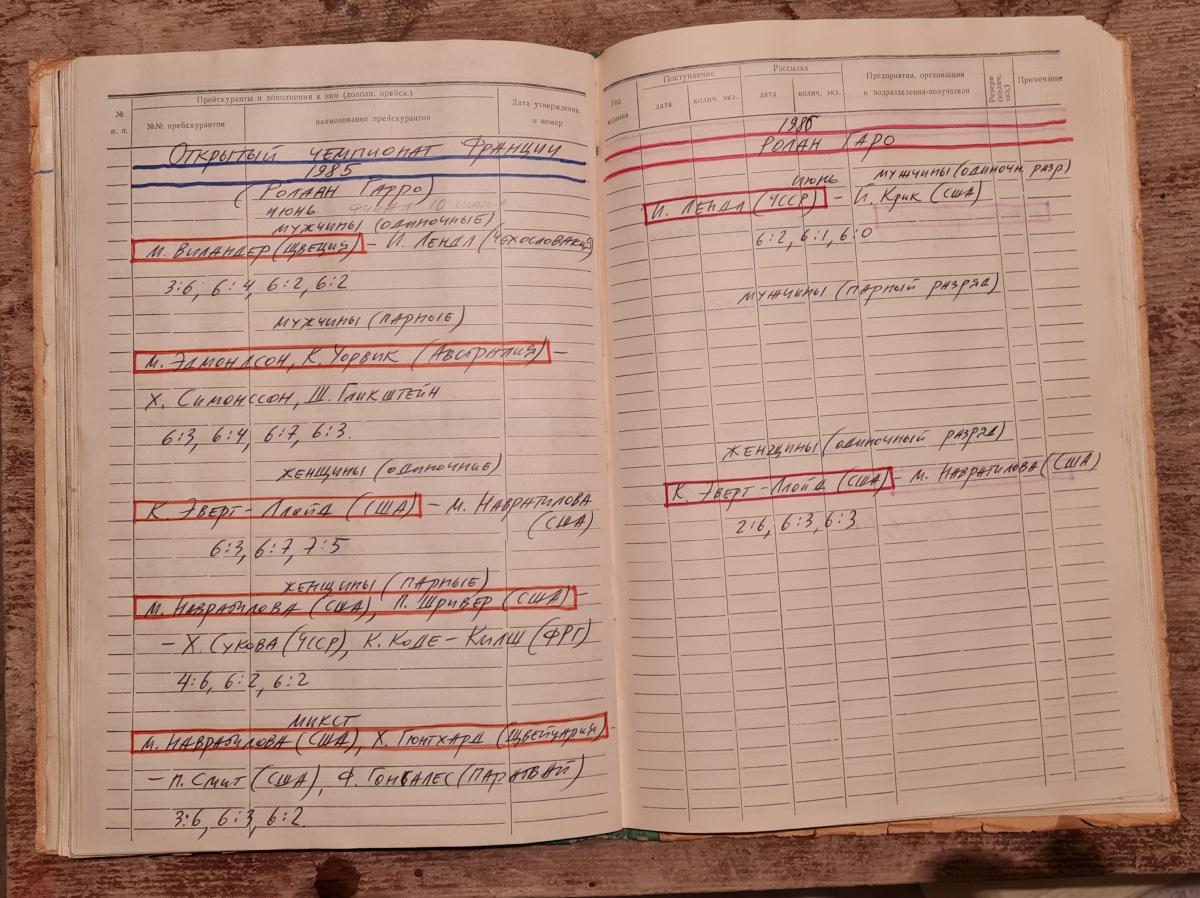 № п. п.
Прейскуранты и дополнения к ним (дополн. прейск.)
№№ прейскурантов
наименование прейскурантов
Дата утверждения и номер
ОТКРЫТЫЙ ЧЕМПИОНАТ ФРАНЦИИ
1985
(РОЛЛАН ГАРРО)
ИЮНЬ ФИНАЛ 10 июня
МУЖЧИНЫ (ОДИНОЧНЫЕ)
М. ВИЛАНДЕР (ЩВЕЦИЯ) – И. ЛЕНДЛ (ЧЕХОСЛОВАКИЯ)
3:6, 6:4, 6:2, 6:2
МУЖЧИНЫ (ПАРНЫЕ)
М. ЭДМОНДСОН, К. УОРВИК (АВСТРАЛИЯ) –
Х. СИМОНССОН, Ш. ГЛИКШТЕЙН
6:3, 6:4, 6:7, 6:3.
ЖЕНЩИНЫ (ОДИНОЧНИЕ)
К. ЭВЕРТ – ЛЛОЙД (США) – М. НАВРАТИЛОВА
(США)
6:3, 6:7, 7:5
ЖЕНЩИНЫ (ПАРНЫЕ)
М. НАВРАТИЛОВА (США), П. ШРИВЕР (США) –
– Х. СУКОВА (ЧССР), К. КОДЕ – КИЛШ (ФРГ)
4:6, 6:2, 6:2
МИКСТ
М. НАВРАТИЛОВА (США), Х. ГЮНТХАРД (ЩВЕЙЦАРИЯ) –
– П. СМИТ (США), Ф. ГОНСАЛЕС (ПАРАГВАЙ)
3:6, 6:3, 6:2.
Год издания
Поступление
дата
колич. экз.
Рассылка
дата
колич. экз.
Предприятия, организации и подразделения-получатели
Резерв (колич. экз.)
Примечание
1986
РОЛАН ГАРО
ИЮНЬ МУЖЧИНЫ (ОДИНОЧН. РАЗР)
И. ЛЕНДЛ (ЧССР) – Й. КРИК (США)
6:2, 6:1, 6:0
МУЖЧИНЫ (ПАРНЫЙ РАЗРЯД)
ЖЕНЩИНЫ (ОДИНОЧНЫЙ РАЗРЯД)
К. ЭВЕРТ – ЛЛОЙД (США) – М. НАВРАТИЛОВА (США)
2:6, 6:3, 6:3